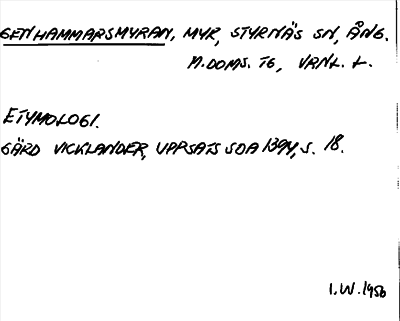 GETINGHAMMARSMYRAN, MYR, STYRNÄS SN, ÅNG.
N. DOMS. TG, VRNL. L.
ETYMOLOGI.
GÄRD VICKLANDER, UPPSATS SOA 1394, S. 18.
I.W. 1956